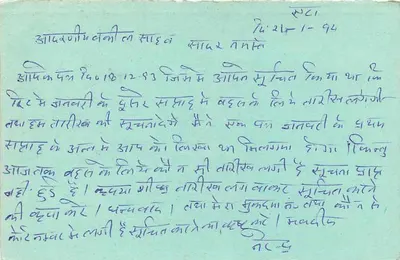 एटा
दि. 25-1-94
आदरणीय वकील साहब
सादर नमस्ते
आपका पत्र दि० 18-12-93 जिसमें आपने सूचित किया था कि
रिट में जनवरी के दूसरे सप्ताह में बहस के लिये तारीख लगेगी
तथा हम तारीख की सूचना देंगे मैंने एक पत्र जनवरी के प्रथम
सप्ताह के अन्त में आप को लिखा था मिल गया होगा। किन्तु
आजतक बहस के लिये कौन सी तारीख लगी है सूचना प्राप्त
नहीं हुई है। कृपया शीघ्र तारीख लगवाकर सूचित करने
की कृपा करें। धन्यवाद। तथा मेरा मुकदमा नं० तथा कौन से
कोर्ट नम्बर में लगी है सूचित करने का कष्ट करें। भवदीय